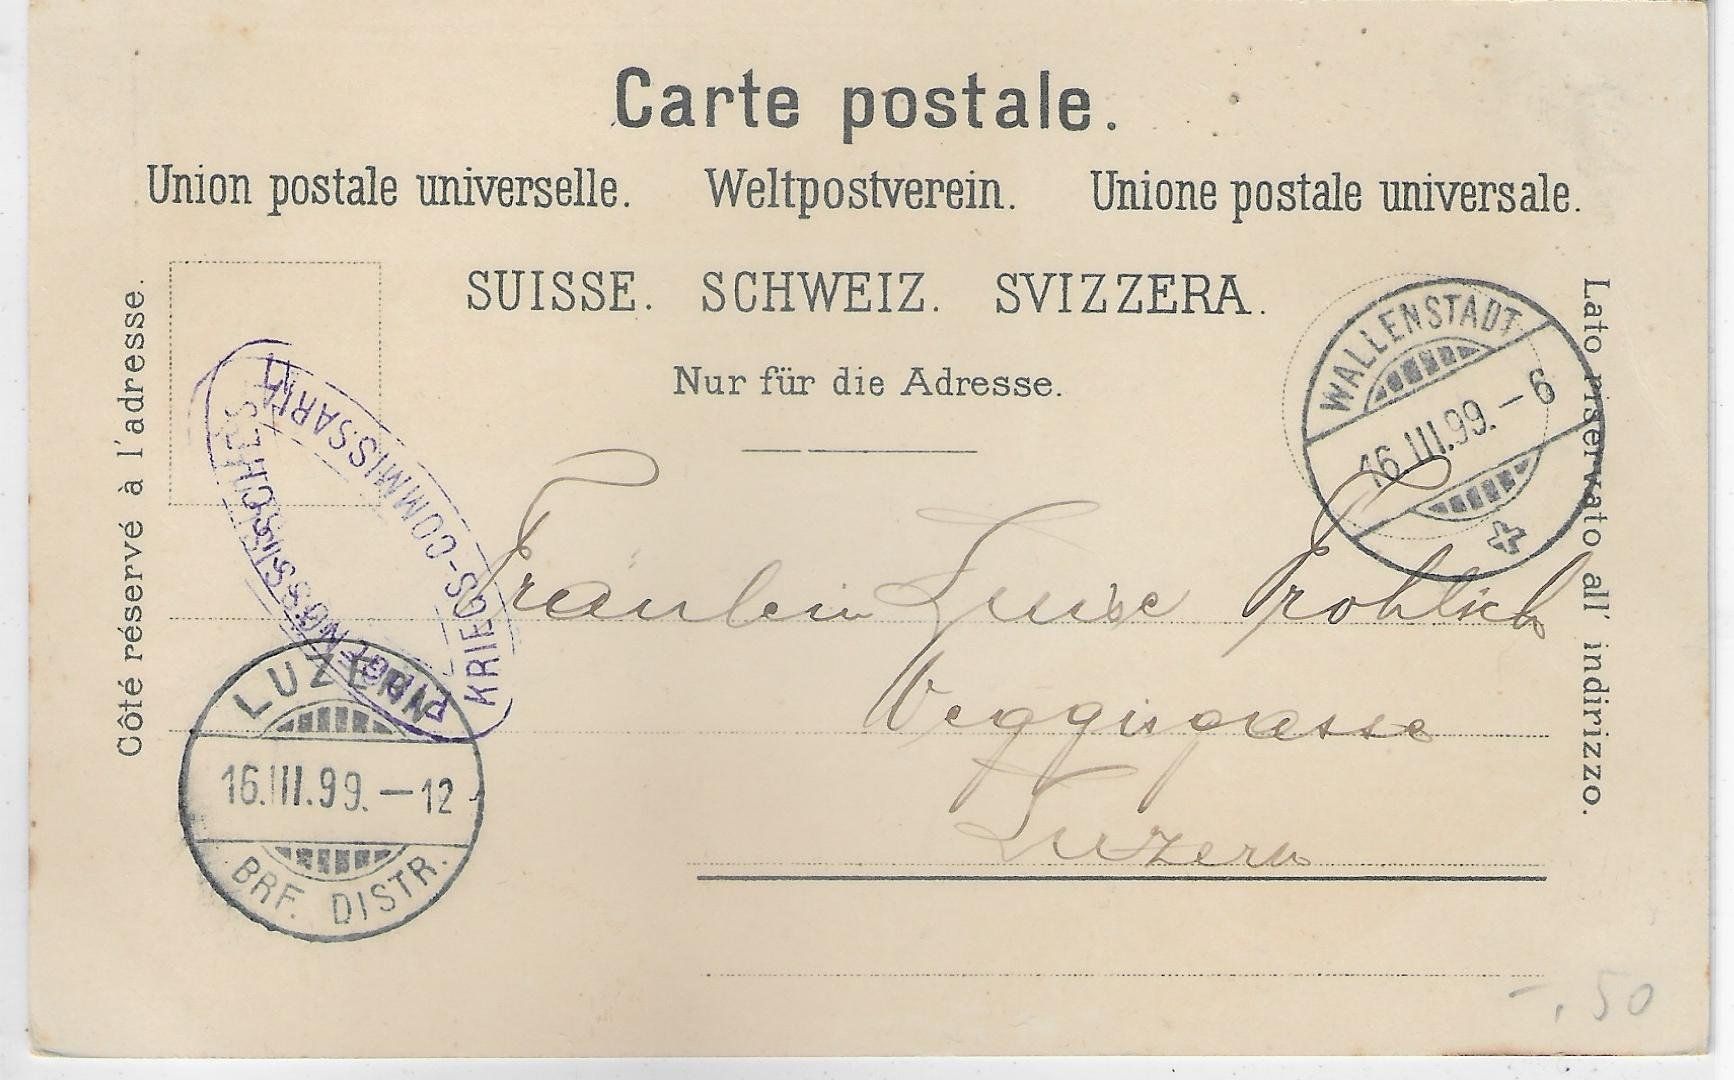 Carte postale.
Union postale universelle. Weltpostverein. Unione postale universale.
SUISSE. SCHWEIZ. SVIZZERA.
Nur für die Adresse.
Côté réservé à l'adresse.
Lato riservato all' indirizzo.
WALLENSTADT
16.III.99.–6
KRIEGS-COMMISSARIAT
LUZERN
16.III.99.–12
BRF. DISTR.
Fräulein Luise Frohlich
Weggisgasse
Luzern
–.50